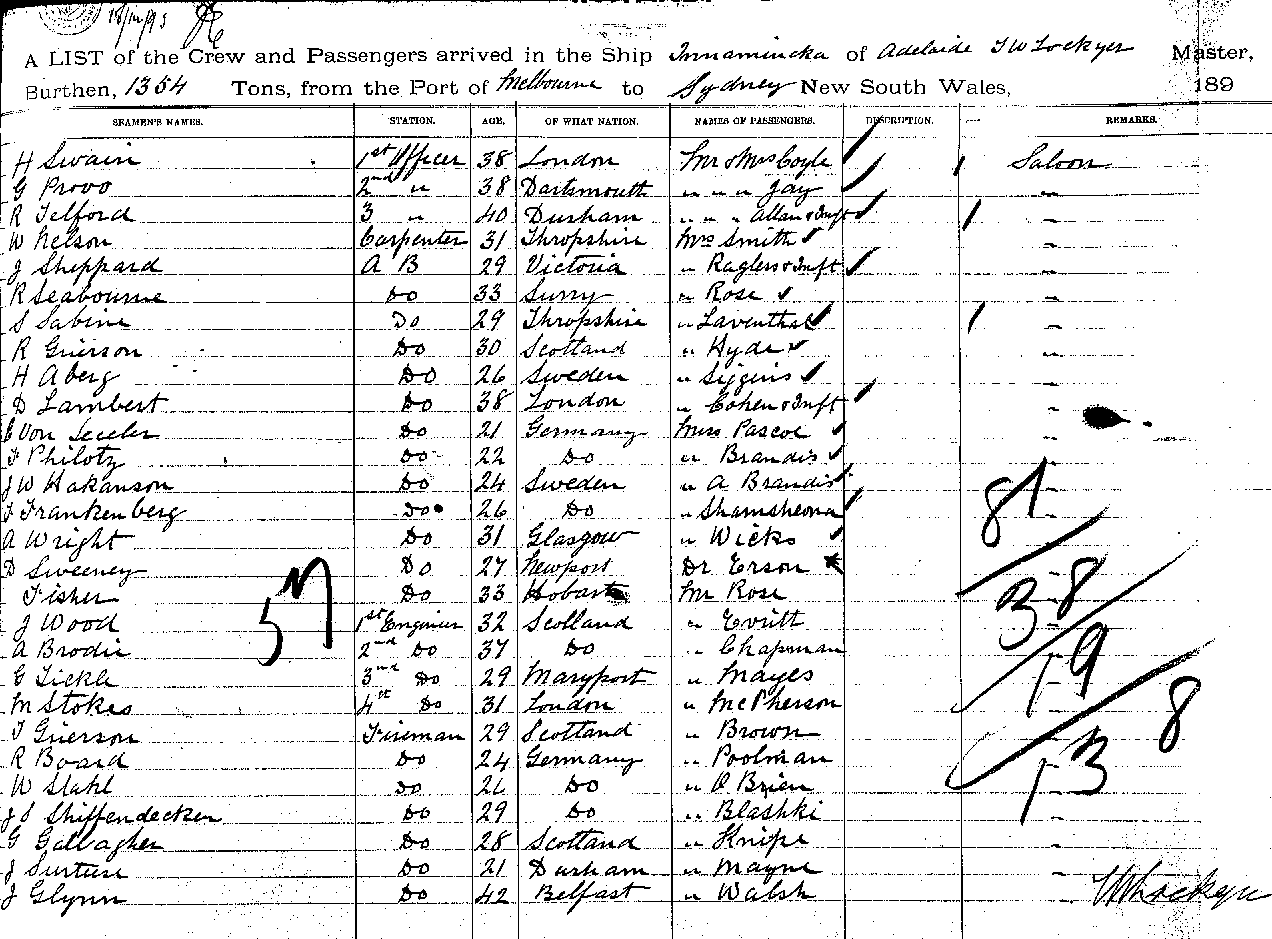 18/10/93
A LIST of the Crew and Passengers arrived in the Ship Innamincka of Adelaide T W Lockyer Master,
Burthen, 1354 Tons, from the Port of Melbourne to Sydney New South Wales, 189
SEAMEN'S NAMES. STATION. AGE. OF WHAT NATION. NAMES OF PASSENGERS. DESCRIPTION. REMARKS.
H Swain 1st Officer 38 London Mr & Mrs Coyle Saloon
G Provo 2nd " 38 Dartsmouth " " " Jay "
R Telford 3 " 40 Durham " " " Allan & Inft "
W Nelson Carpenter 31 Thropshire Mrs Smith "
J Sheppard A B 29 Victoria " Ragless & Inft "
R Seabourne Do 33 Surry " Rose "
S Sabine Do 29 Thropshire " Laventhal "
R Grierson Do 30 Scotland " Hyde "
H Aberg Do 26 Sweden " Siggins "
D Lambert Do 38 London " Cohen & Inft "
Von Do 21 Germany Miss Pascoe "
F Philotz Do 22 Do " Brandis "
J W Hakanson Do 24 Sweden " A Brandis "
Frankenberg Do 26 Do " "
A Wright Do 31 Glasgow " Wicks "
D Sweeney Do 27 Newport Dr Erson "
Fisher Do 33 Hobart Mr Rose "
J Wood 1st Engineer 32 Scotland " Evritt
A Brodie 2nd Do 37 Do " Chapman
G Tickle 3rd Do 29 Maryport " Mayes
M Stokes 4th Do 31 London " McPherson
T Grierson Fireman 29 Scotland " Brown
R Board Do 24 Germany " Poolman
W Stahl Do 26 Do " O Brien
J S Shiffendecker Do 29 Do " Blashki
G Gallagher Do 28 Scotland " Knipe
J Surtees Do 21 Durham " Mayne
J Glynn Do 42 Belfast " Walsh
57
81
38
19
8
13
T W Lockyer